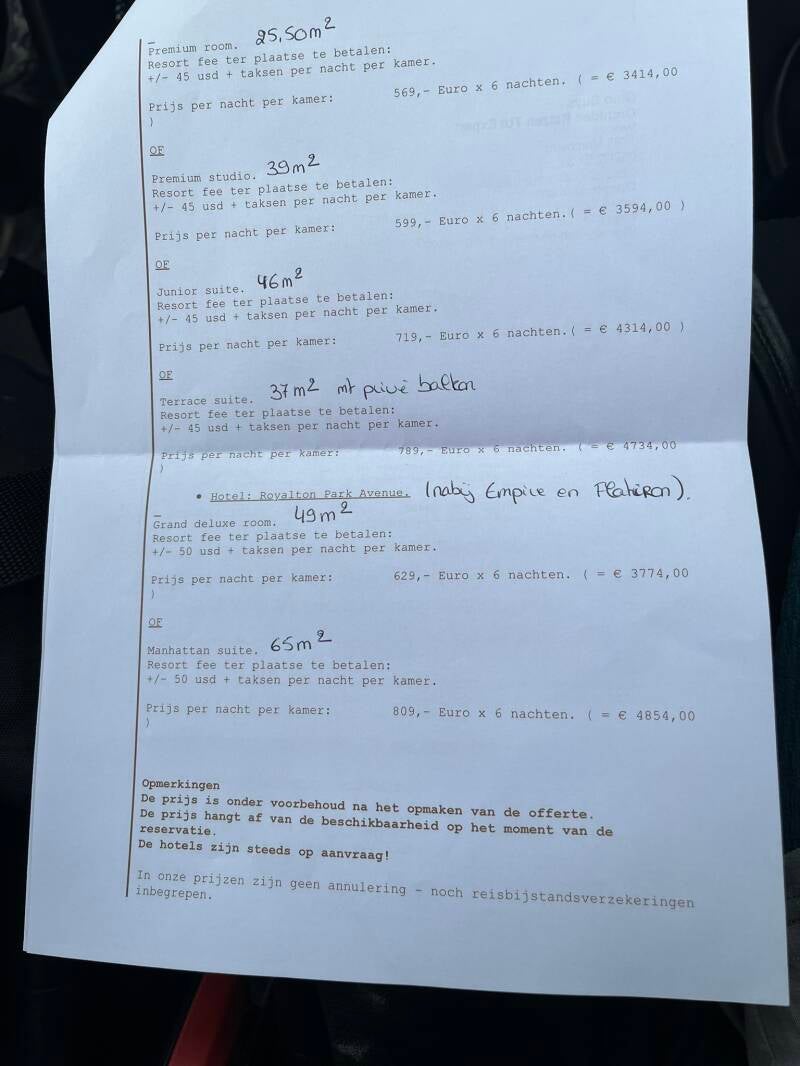 Premium room. 25,50m²
Resort fee ter plaatse te betalen:
+/- 45 usd + taksen per nacht per kamer.
Prijs per nacht per kamer: 569,- Euro x 6 nachten. ( = € 3414,00
)
OF
Premium studio. 39m²
Resort fee ter plaatse te betalen:
+/- 45 usd + taksen per nacht per kamer.
Prijs per nacht per kamer: 599,- Euro x 6 nachten.( = € 3594,00 )
OF
Junior suite. 46m²
Resort fee ter plaatse te betalen:
+/- 45 usd + taksen per nacht per kamer.
Prijs per nacht per kamer: 719,- Euro x 6 nachten.( = € 4314,00 )
OF
Terrace suite. 37m² mt privé balkon
Resort fee ter plaatse te betalen:
+/- 45 usd + taksen per nacht per kamer.
Prijs per nacht per kamer: 789,- Euro x 6 nachten. ( = € 4734,00
)
• Hotel: Royalton Park Avenue. (nabij Empire en Flatiron).
Grand deluxe room. 49m²
Resort fee ter plaatse te betalen:
+/- 50 usd + taksen per nacht per kamer.
Prijs per nacht per kamer: 629,- Euro x 6 nachten. ( = € 3774,00
)
OF
Manhattan suite. 65m²
Resort fee ter plaatse te betalen:
+/- 50 usd + taksen per nacht per kamer.
Prijs per nacht per kamer: 809,- Euro x 6 nachten. ( = € 4854,00
)
Opmerkingen
De prijs is onder voorbehoud na het opmaken van de offerte.
De prijs hangt af van de beschikbaarheid op het moment van de
reservatie.
De hotels zijn steeds op aanvraag!
In onze prijzen zijn geen annulering - noch reisbijstandsverzekeringen
inbegrepen.